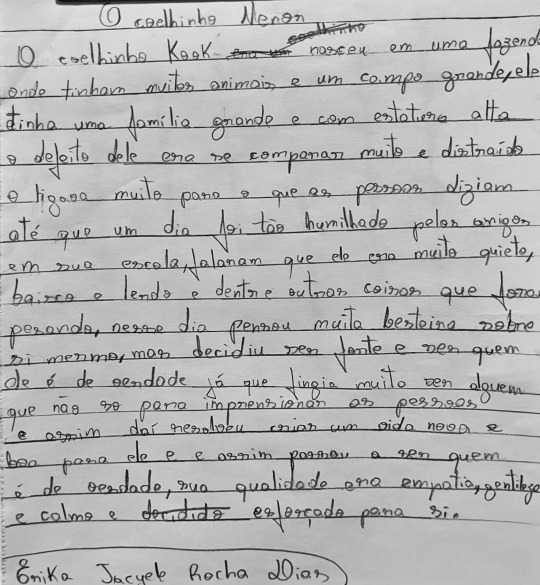 O coelhinho Menor
O coelhinho Kook era um coelhinho nasceu em uma fazend
onde tinham muitos animais e um campo grande, ele
tinha uma família grande e com estatura alta
o defeito dele era se comparar muito e distraído
e ligava muito para o que as pessoas diziam
até que um dia foi tão humilhado pelos amigos
em sua escola, falaram que ele era muito quieto,
baixo e lendo e dentre outras coisas que fora
pesando, nesse dia pensou muita besteira sobre
si mesmo, mas decidiu ser forte e ser quem
ele é de verdade já que fingia muito ser alguem
que não so para imprensionar as pessoas
e assim daí resolveu criar um vida nova e
boa para ele e e assim passou a ser quem
é de verdade, sua qualidade era empatia, gentileza
e calmo e decidido esforçado para si.
Erika Jacyele Rocha Dias